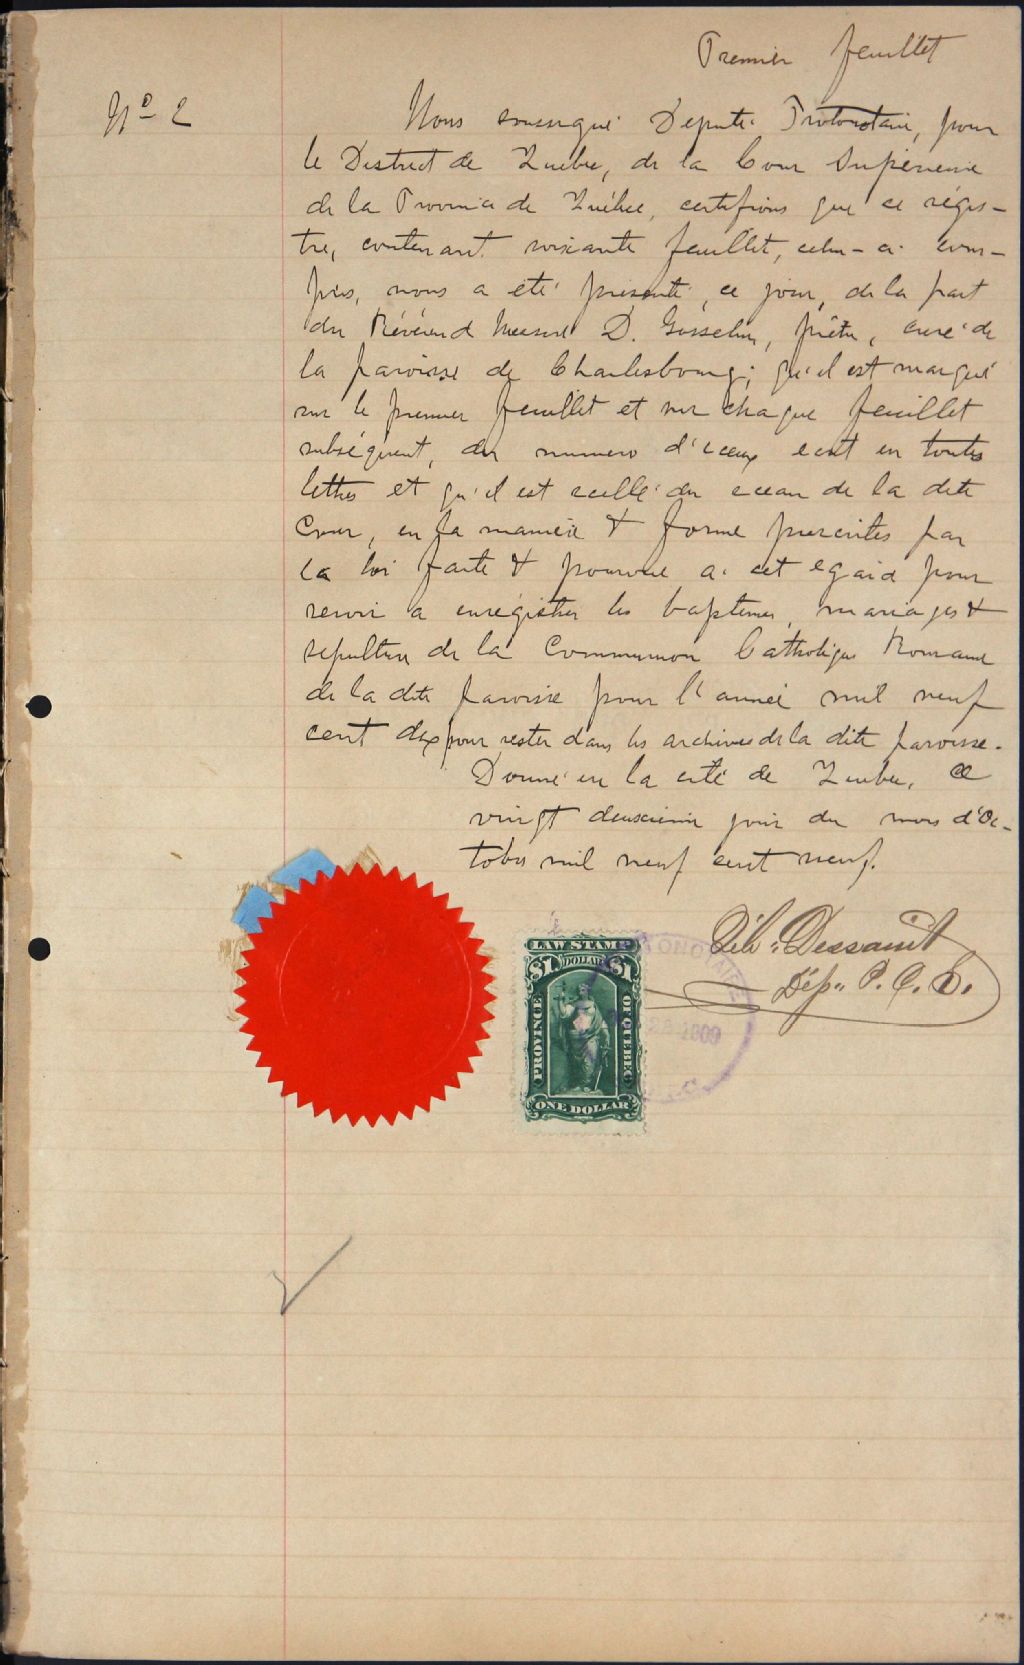 Premier feuillet
No 2
Nous soussigné Député Protonotaire, pour
le District de Québec, de la Cour Supérieure
de la Province de Québec, certifions que ce régis-
tre, contenant soixante feuillet, celui-ci com-
pris, nous a été présenté, ce jour, de la part
du Révérend Messire D. Gosselin, prêtre, curé de
la paroisse de Charlesbourg; qu'il est marqué
sur le premier feuillet et sur chaque feuillet
subséquent, du numéro d'iceux écrit en toutes
lettres et qu'il est scellé du sceau de la dite
Cour, en la manière & forme prescrites par
la loi faite & pourvue à cet égard pour
servir à enrégistrer les baptêmes, mariages &
sépulture de la Communion Catholique Romaine
de la dite paroisse pour l'année mil neuf
cent dix pour rester dans les archives de la dite paroisse.
Donné en la cité de Québec, ce
vingt deuxième jour du mois d'Oc-
tobre mil neuf cent neuf.
Dessaint
Dép. P. C. S.
LAW STAMP
$1 DOLLAR $1
PROVINCE OF QUEBEC
ONE DOLLAR
1909